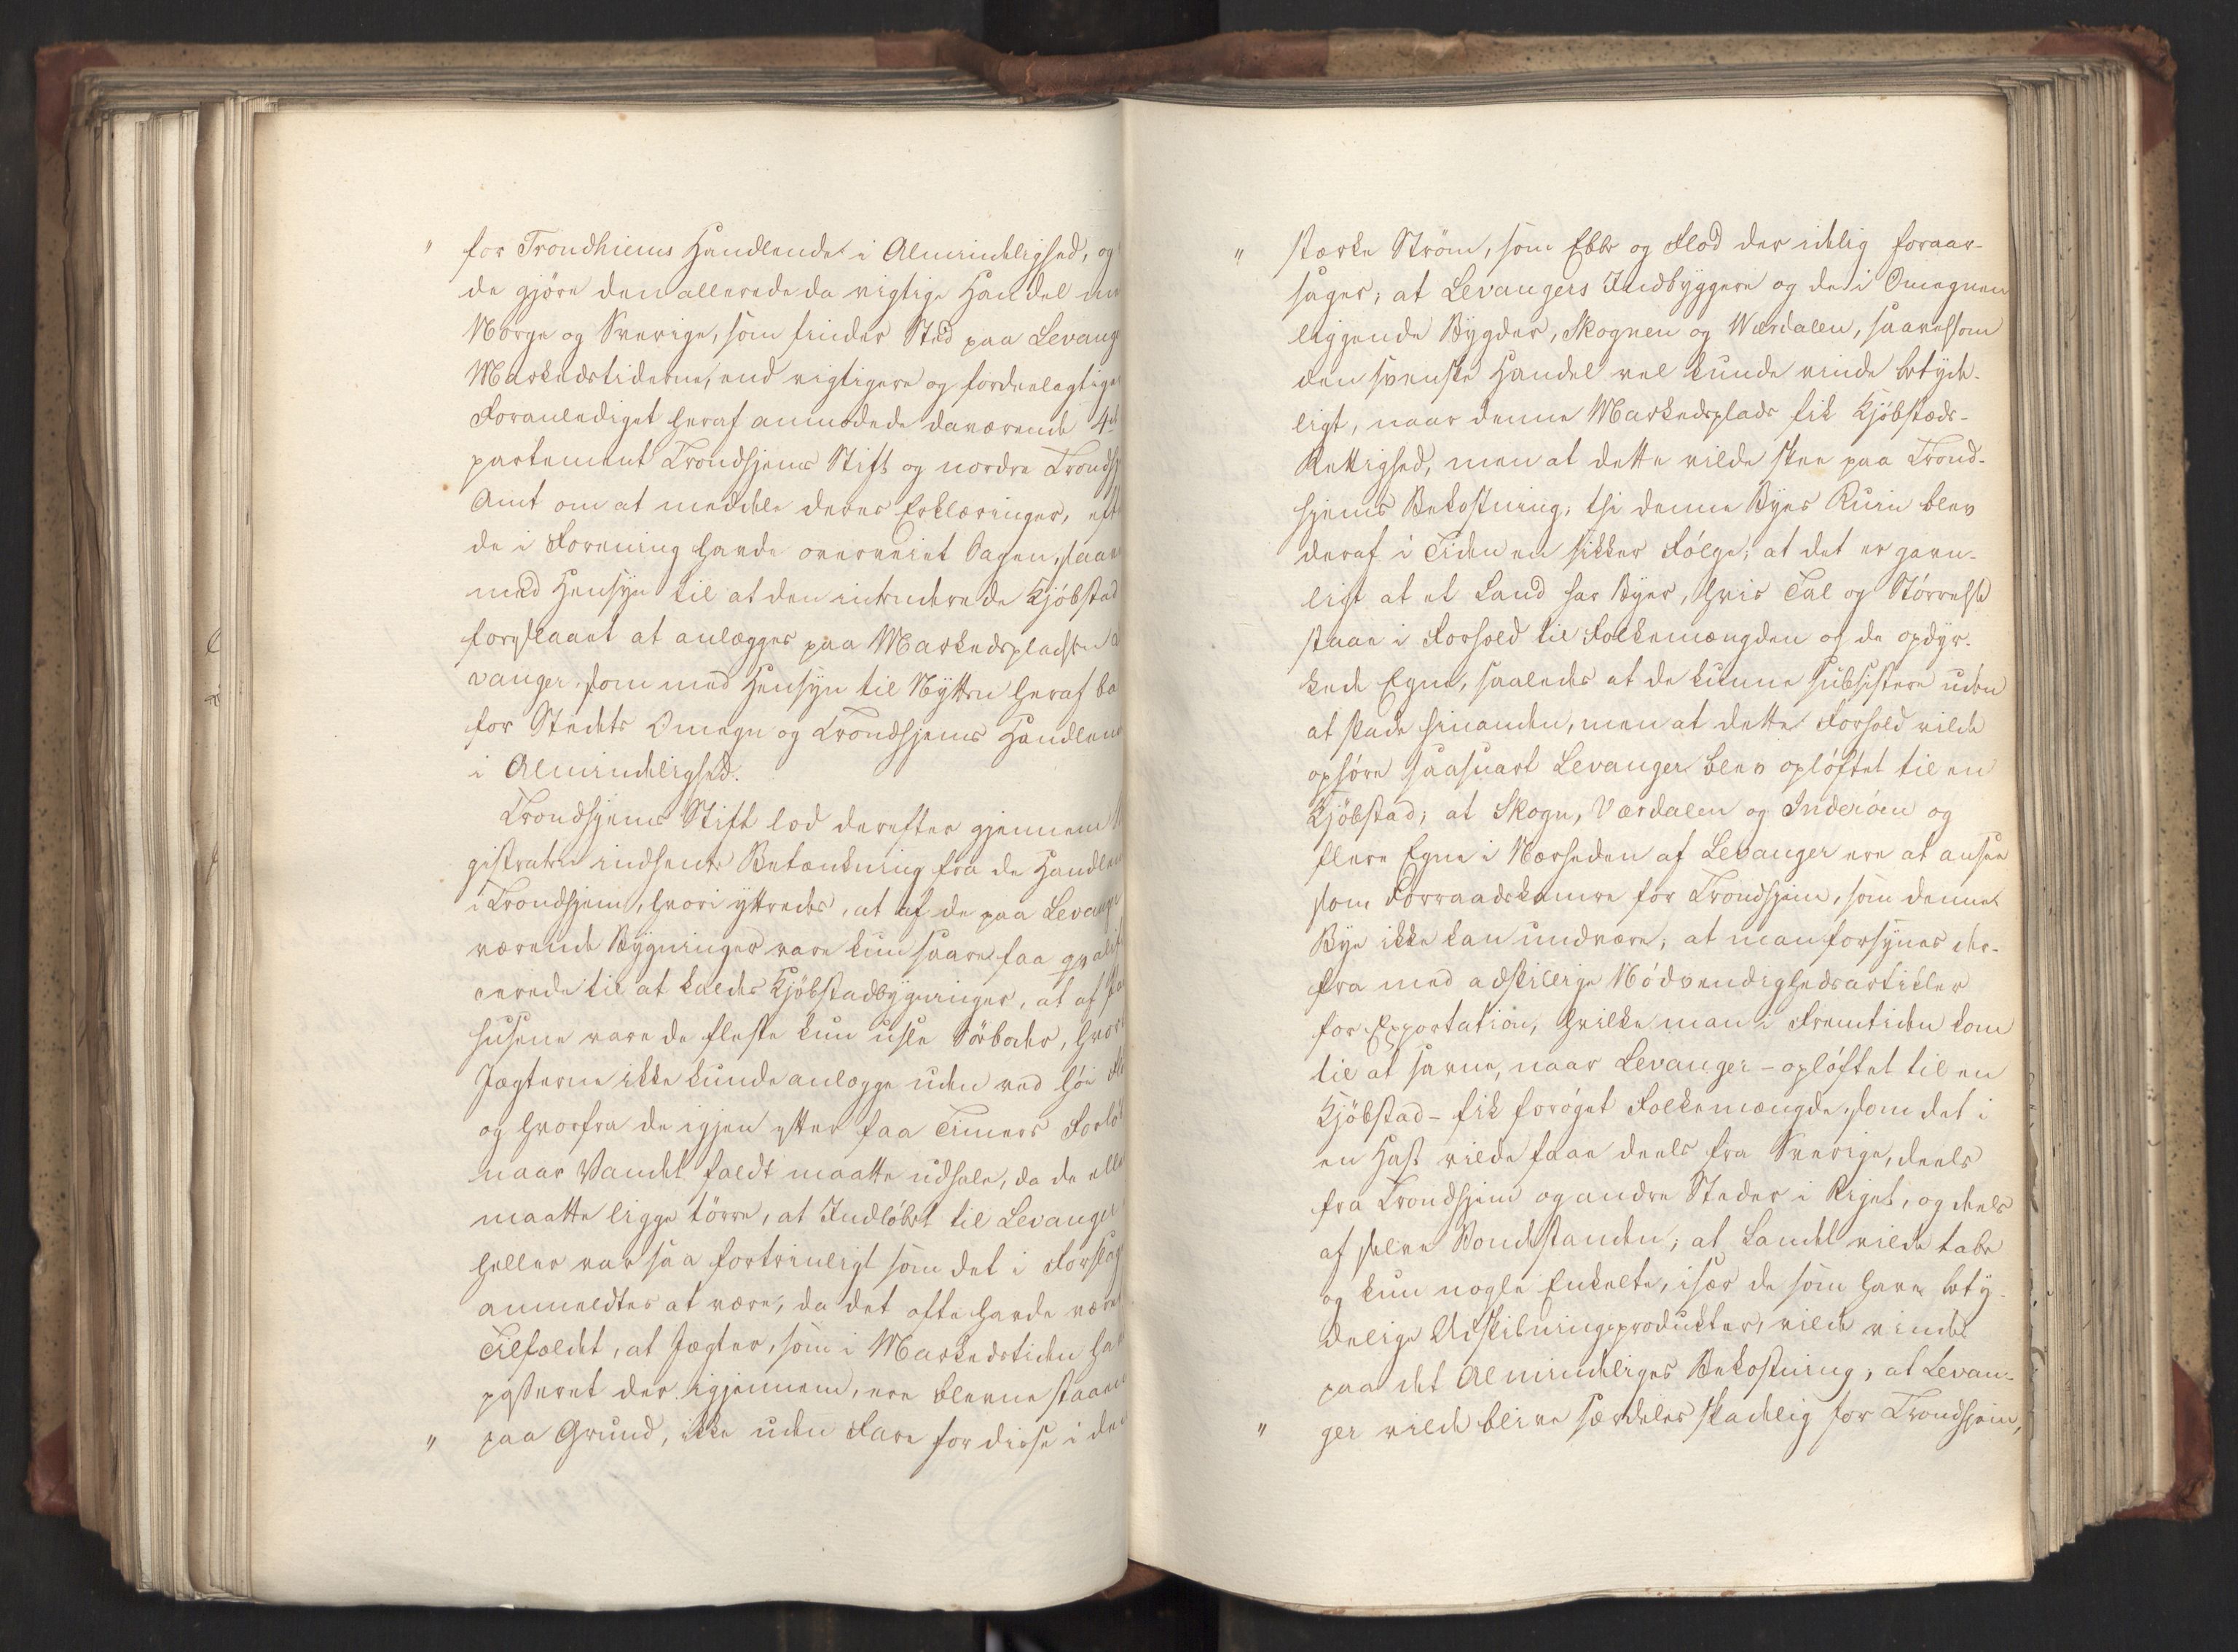 " for Trondhiems Handlende i Almindelighed, og
de gjöre den allerede da vigtige Handel
Norge og Sverige, som finder Sted paa Levang
Markedstiderne, end vigtigere og fordeelagtige
Foranlediget heraf anmodede daværende 4de
partement Trondhjems Stift og nordre Trondhj
Amt om at meddele deres Erklæringer, eft
de i Forening havde overveiet Sagen, saav
med Hensyn til at den intenderede Kjöbstad
foreslaaet at anlægges paa Markedspladsen
vanger, som med Hensyn til Nytten heraf
for Stedets Omegn og Trondhjems Handlen
i Almindelighed.
Trondhjems Stift lod derefter gjennem
gistraten indhente Betænkning fra de Handlen
i Trondhjem, hvori yttredes, at af de paa Levange
værende Bygninger vare kun saare faa qvalifi
cerede til at kaldes Kjöbstadbygninger, at af
husene vare de fleste kun usle Söboder, hvor
Jægterne ikke kunde anlægge uden ved höi
og hvorfra de igjen efter faa Timers Forlöb
naar Vandet faldt maatte udhale, da de elle
maatte ligge törre, at Indlöbet til Levanger
heller var saa fortrinligt som det i Forslag
anmeldtes at være, da det ofte havde været
Tilfældet, at Jægter, som i Markedstiden ha
passeret der igjennem, ere blevne staaen
" paa Grund, ikke uden Fare for disse i den
" stærke Ström, som Ebbe og Flod der idelig foraar-
sager; at Levangers Indbyggere og de i Omegnen
liggende Bygder, Skognen og Værdalen, saavelsom
den svenske Handel vel kunde vinde betyde-
ligt, naar denne Markedsplads fik Kjöbstæds-
Rettighed, men at dette vilde skee paa Trond-
hjems Bekostning; thi denne Byes Ruin blev
deraf i Tiden en sikker Fölge; at det er gavn-
ligt at et Land har Byer, hvis Tal og Störrelse
staae i Forhold til Folkemængden og de opdyr-
kede Egne, saaledes at de kunne subsistere uden
at skade hinanden, men at dette Forhold vilde
ophöre saasnart Levanger blev oplöftet til en
Kjöbstad; at Skogn, Værdalen og Inderöen og
flere Egne i Nærheden af Levanger ere at ansee
som Forraadskamre for Trondhjem, som denne
Bye ikke kan undvære; at man forsynes der-
fra med adskillige Nödvendighedsartikler
for Exportation, hvilke man i Fremtiden kom
til at savne, naar Levanger - oplöftet til en
Kjöbstad - fik foröget Folkemængde, som det i
en Hast vilde faae deels fra Sverige, deels
fra Trondhjem og andre Steder i Riget, og deels
af selve Bondestanden; at Landet vilde tabe
og kun nogle Enkelte, især de som have bety-
delige Udskibningsprodukter, vilde vinde
paa det Almindeliges Bekostning; at Levan-
" ger vilde blive særdeles skadelig for Trondhjem,